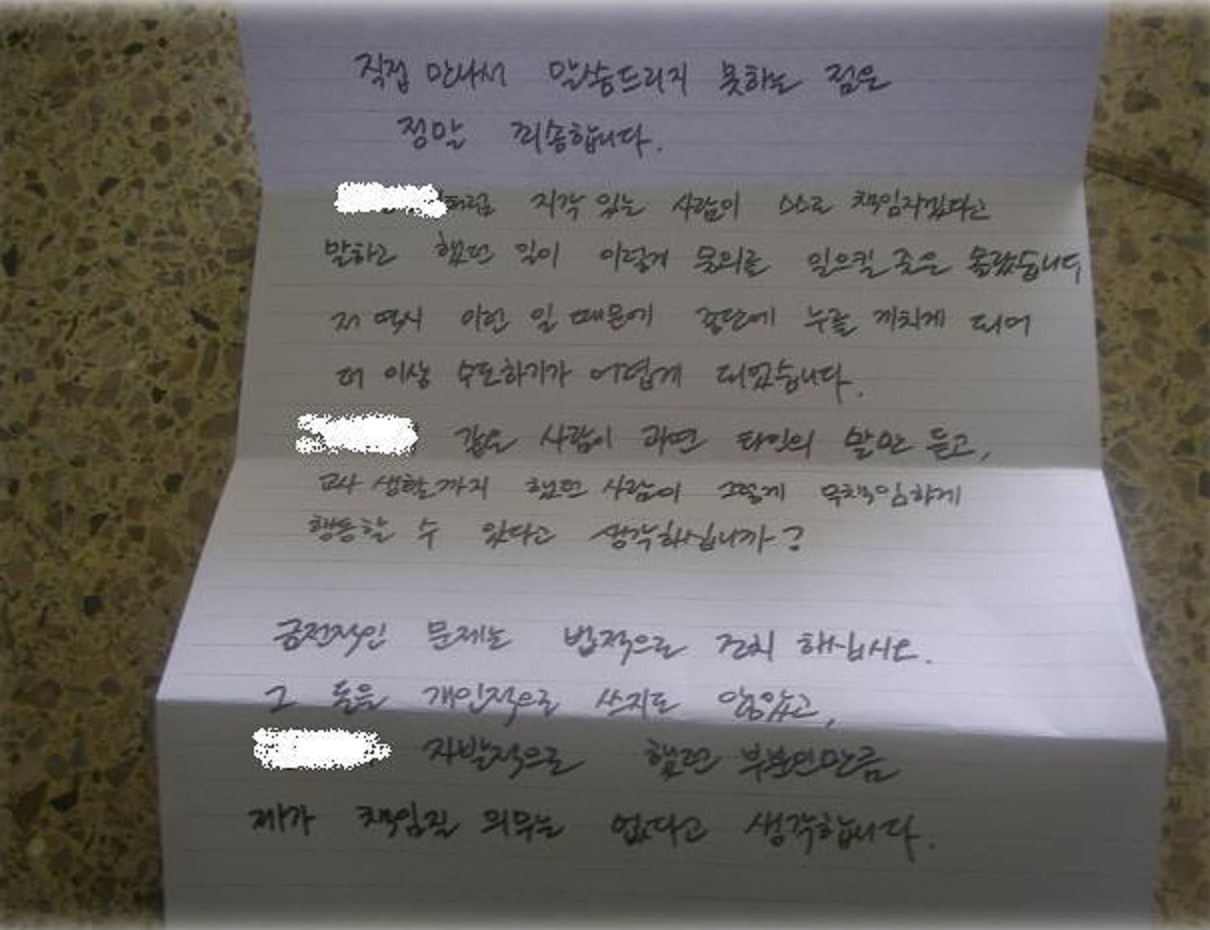 직접 만나서 말씀드리지 못하는 점은
정말 죄송합니다.
처럼 지각 있는 사람이 스스로 책임지겠다고
말하고 했던 일이 이렇게 물의를 일으킬 줄은 몰랐습니다
저 역시 이런 일 때문에 중단에 누를 끼치게 되어
더 이상 수도하기가 어렵게 되었습니다.
같은 사람이 과연 타인의 말만 듣고,
교사 생활까지 했던 사람이 그렇게 무책임하게
행동할 수 있다고 생각하십니까?
금전적인 문제는 법적으로 조치 하십시오.
그 돈은 개인적으로 쓰지도 않았고,
자발적으로 했던 부분인만큼
제가 책임질 의무는 없다고 생각합니다.